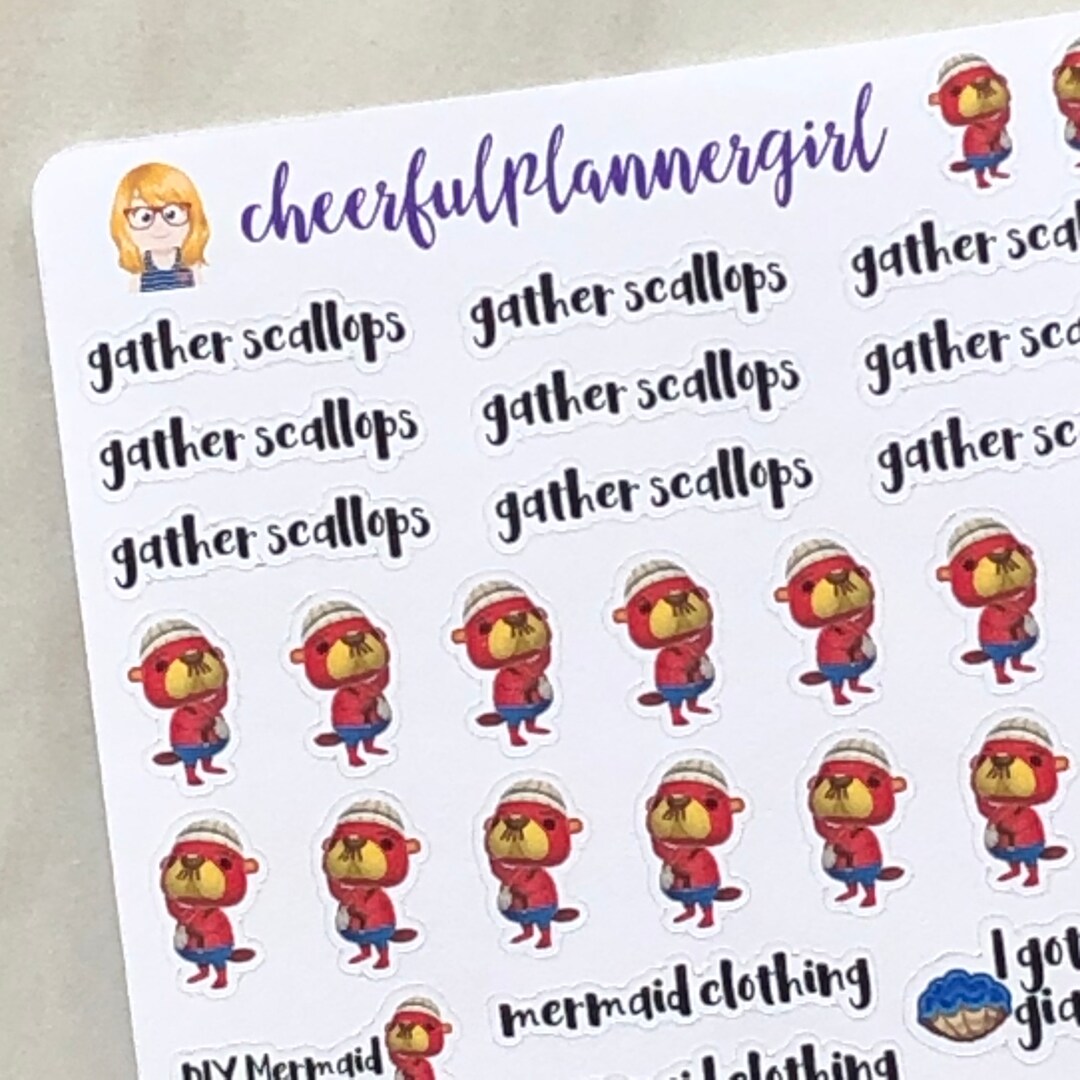 cheerfulplannergirl
gather scallops gather scallops gather scal
gather scallops gather scallops gather sca
gather scallops gather scallops gather sc
mermaid clothing I got
gia
DIY Mermaid clothing